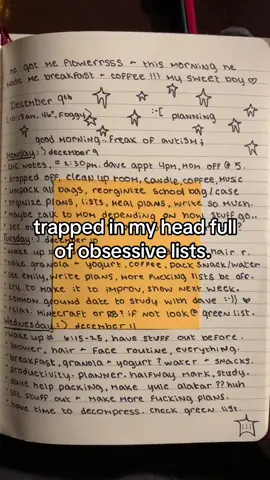 he got me flowerrsss - this morning he
made me breakfast - coffee !!! my sweet boy ♡
December 9th
10:18am, 46°, Foggy
:-[ planning
good morning - freak of autism;
Monday:) december 9
notes, 2:30pm. dave appt 4pm, mom off @ 5.
dropped off, clean up room, candle, coffee, music
unpack all bags, reorginize school bag / case
orginize plans, lists, meal plans, write so much.
maybe talk to mom depending on how stuff go..
trapped in my head full
of obsessive lists.
Tuesday:) december 10
wake up hair r.
make granola + yogurt, coffee, pack snack/water
see emily, write plans, more fucking lists be ofc.
try to make it to improv, show next week.
common ground date to study with dave :-)) ♡
relax. minecraft or if not look @ green list.
Wednesday:) december 11
wake up 6:15-25, have stuff out before.
shower, hair + face routine, everything.
breakfast, granola + yogurt? water + smacks.
productivity. planner. halfway mark, study.
dave help packing, make yule alatar?? huh
set stuff out - make more fucking plans.
have time to decompress. check green list.